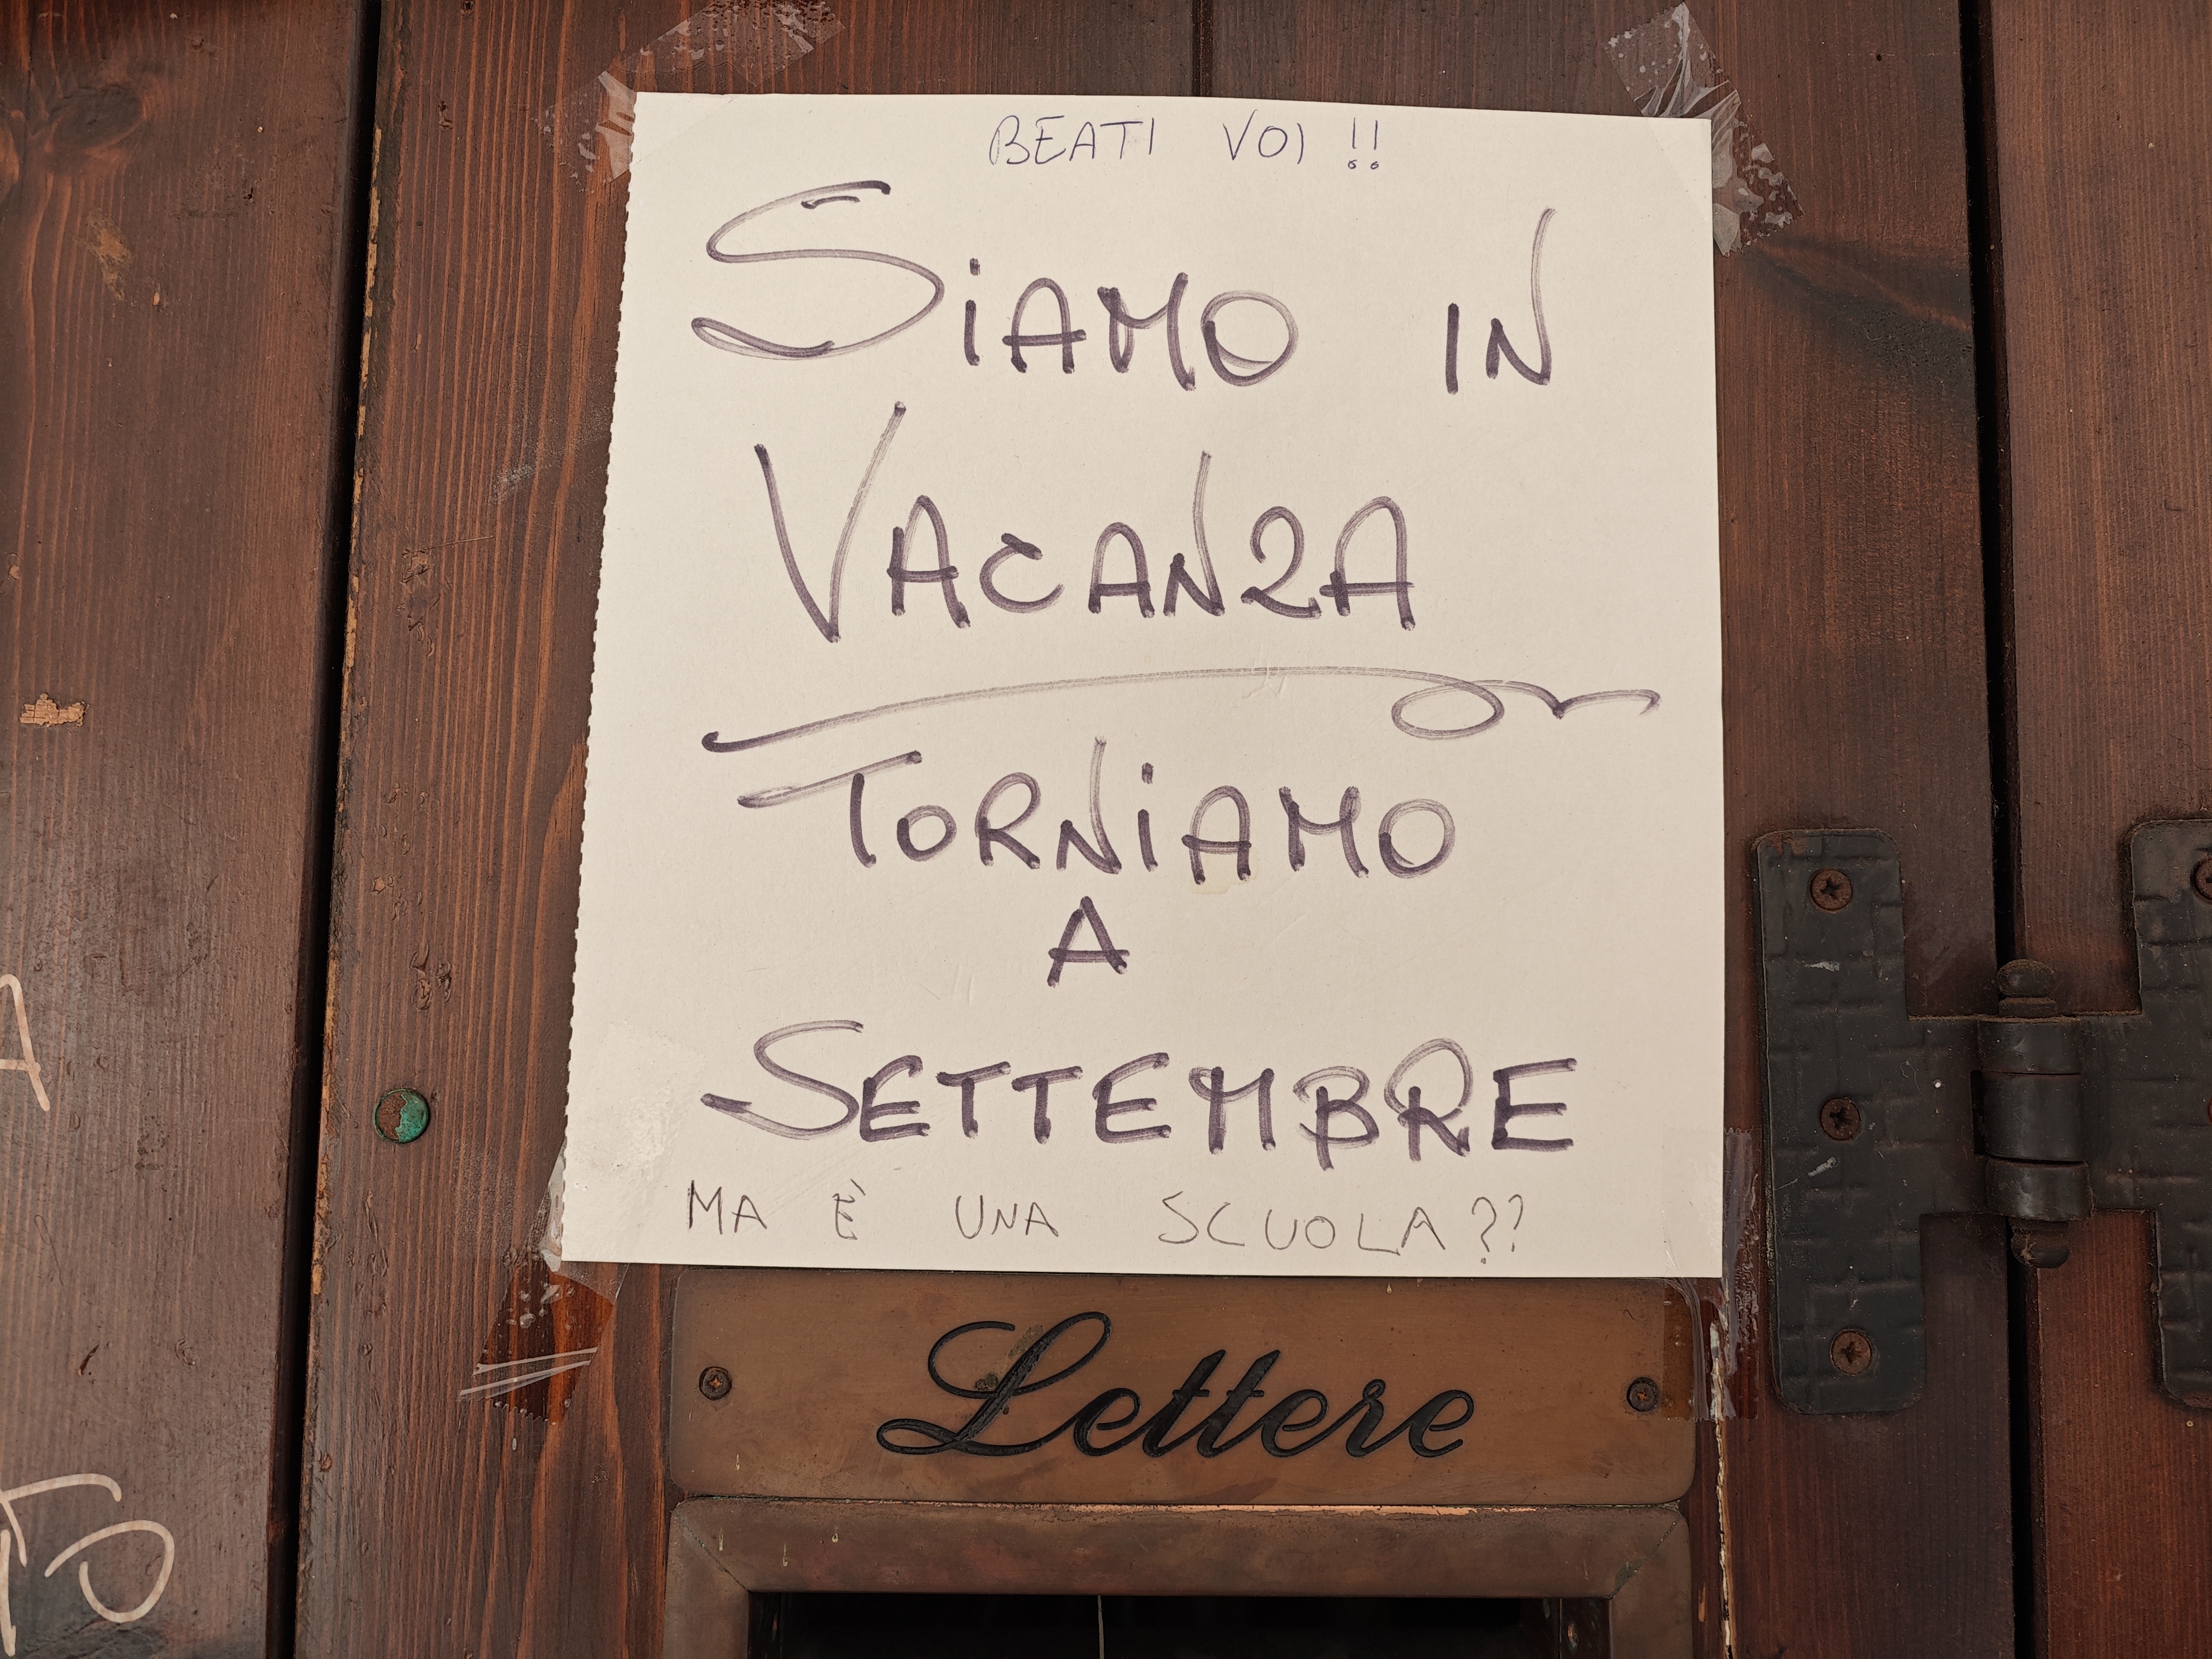 BEATI VOI !!
SiAMO IN
VACANZA
TORNiAMO
A
SETTEMBRE
MA È UNA SCUOLA??
Lettere